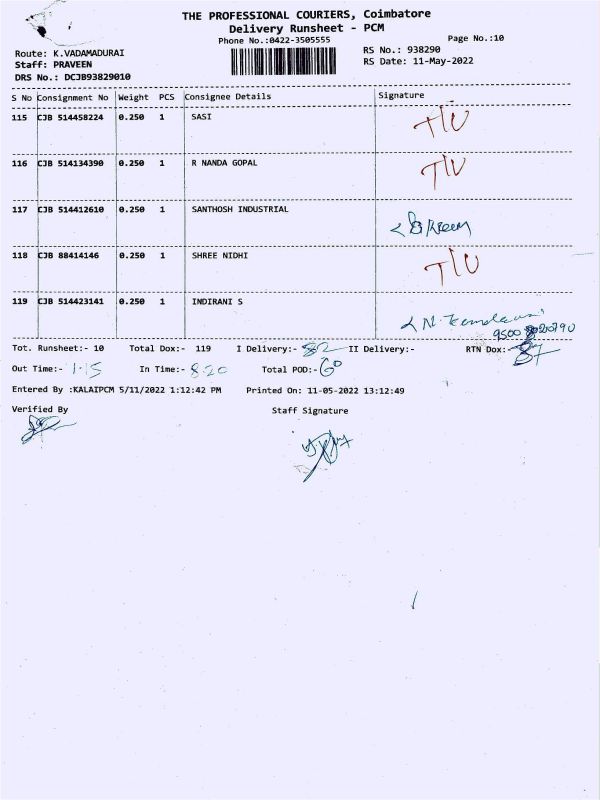 THE PROFESSIONAL COURIERS, Coimbatore
Delivery Runsheet - PCM
Phone No.:0422-3505555 Page No.:10
Route: K.VADAMADURAI RS No.: 938290
Staff: PRAVEEN RS Date: 11-May-2022
DRS No.: DCJB93829010
S No Consignment No Weight PCS Consignee Details Signature
115 CJB 514458224 0.250 1 SASI T/U
116 CJB 514134390 0.250 1 R NANDA GOPAL T/U
117 CJB 514412610 0.250 1 SANTHOSH INDUSTRIAL
118 CJB 88414146 0.250 1 SHREE NIDHI T/U
119 CJB 514423141 0.250 1 INDIRANI S
Tot. Runsheet:- 10 Total Dox:- 119 I Delivery:- 82 II Delivery:- RTN Dox:- 37
Out Time:- 1.15 In Time:- 8.20 Total POD:- 60
Entered By :KALAIPCM 5/11/2022 1:12:42 PM Printed On: 11-05-2022 13:12:49
Verified By Staff Signature